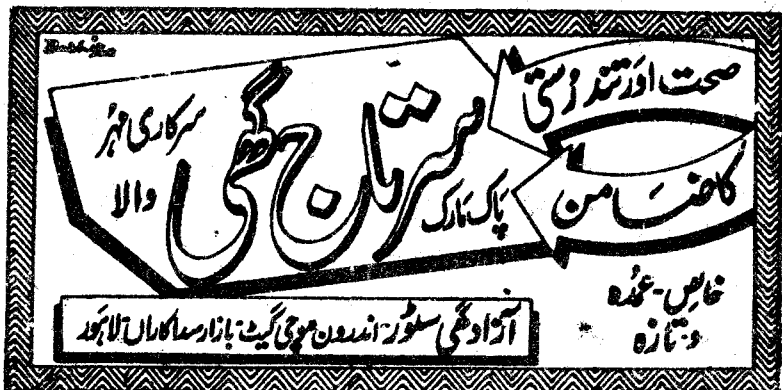 صحت اور تندرستی
کا ضامن
سرتاج گھی
پاک مارک
سرکاری مہر
والا
خالص - عمدہ
و تازہ
آزاد گھی سٹور - اندرون موچی گیٹ - بازار سداکاراں - لاہور